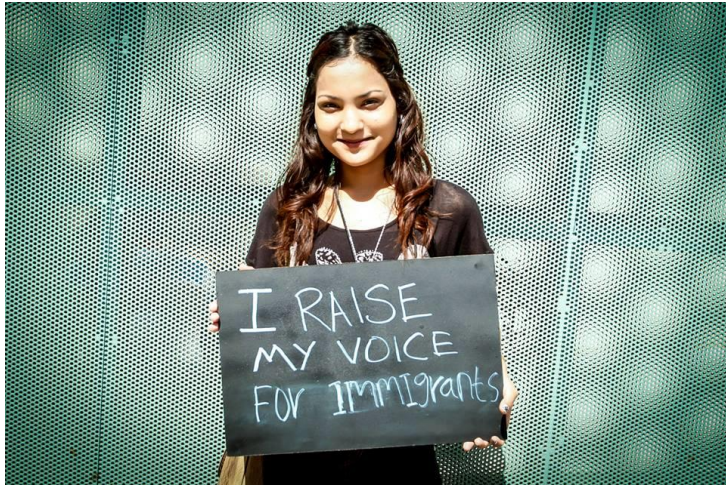 I RAISE
MY VOICE
FOR IMMIGrantS